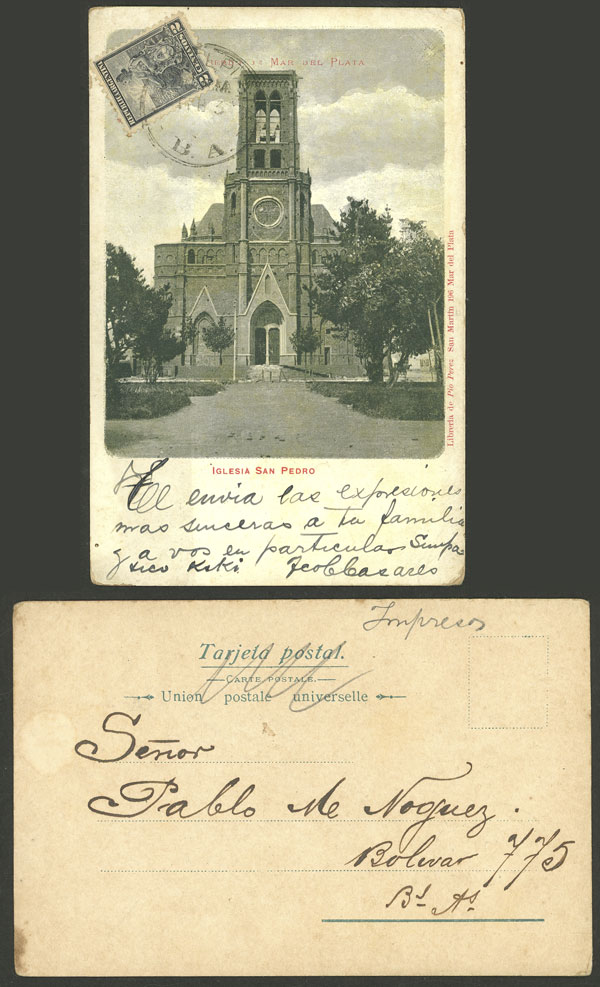 MAR DEL PLATA
CENTAVOS
REPUBLICA ARGENTINA
B. A.
Libreria de Pio Perez San Martin 196 Mar del Plata
IGLESIA SAN PEDRO
envia las expresiones
mas sinceras a tu familia
y a vos en particular Simpa-
tico Kiki
Impresos
Tarjeta postal.
CARTE POSTALE.
Union postale universelle
Señor
Pablo Me Noguez.
Bolivar 775
Bs As